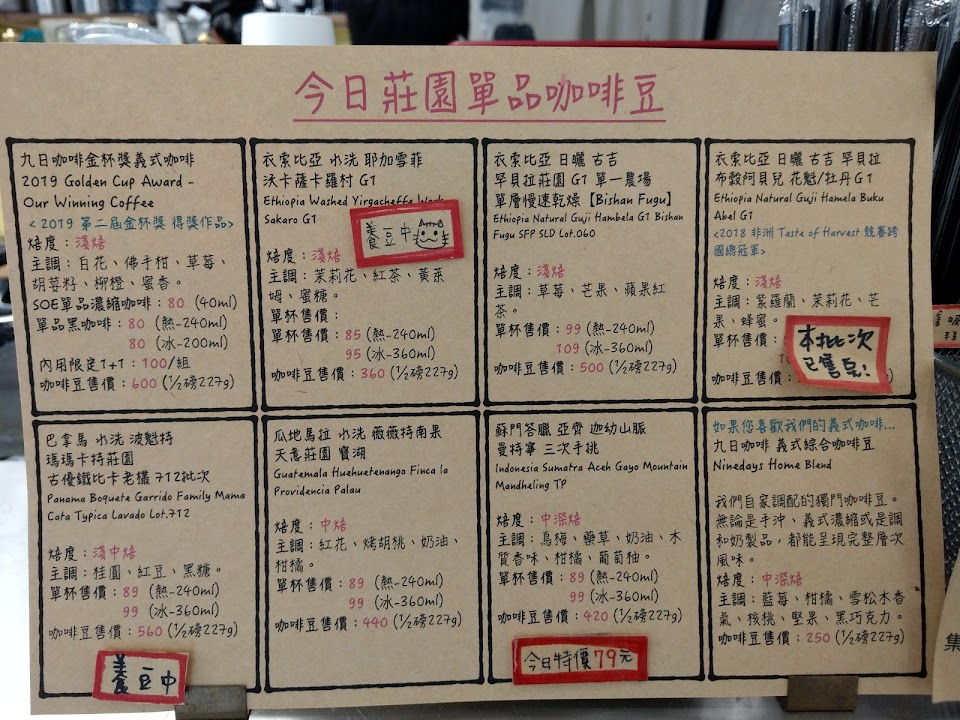 今日莊園單品咖啡豆
九日咖啡金杯獎義式咖啡
2019 Golden Cup Award -
Our Winning Coffee
<2019 第二屆金杯獎 得獎作品>
焙度：淺焙
主調：白花、佛手柑、草莓、
胡荽籽、柳橙、蜜香。
SOE單品濃縮咖啡：80 (40ml)
單品黑咖啡：80 (熱-240ml)
80 (冰-200ml)
內用限定1+1：100/組
咖啡豆售價：600 (½磅227g)
衣索比亞 水洗 耶加雪菲
沃卡薩卡羅村 G1
Ethiopia Washed Yirgacheffe Work
Sakaro G1
養豆中
焙度：淺焙
主調：茉莉花、紅茶、黃萊
姆、蜜糖。
單杯售價：
單杯售價：85 (熱-240ml)
95 (冰-360ml)
咖啡豆售價：360 (½磅227g)
衣索比亞 日曬 古吉
罕貝拉莊園 G1 單一農場
單層慢速乾燥【Bishan Fugu】
Ethiopia Natural Guji Hambela G1 Bishan
Fugu SFP SLD Lot.060
焙度：淺焙
主調：草莓、芒果、蘋果紅
茶。
單杯售價：99 (熱-240ml)
109 (冰-360ml)
咖啡豆售價：500 (½磅227g)
衣索比亞 日曬 古吉 罕貝拉
布穀阿貝兒 花魁/牡丹 G1
Ethiopia Natural Guji Hamela Buku
Abel G1
<2018 非洲 Taste of Harvest 競賽跨
國總冠軍>
焙度：淺焙
主調：紫羅蘭、茉莉花、芒
果、蜂蜜。
單杯售價：
咖啡豆售價：
本批次
已售完!
巴拿馬 水洗 波魁特
瑪瑪卡特莊園
古優鐵比卡老欉 712批次
Panama Boquete Garrido Family Mama
Cata Typica Lavado Lot.712
焙度：淺中焙
主調：桂圓、紅豆、黑糖。
單杯售價：89 (熱-240ml)
99 (冰-360ml)
咖啡豆售價：560 (½磅227g)
養豆中
瓜地馬拉 水洗 薇薇特南果
天意莊園 寶湖
Guatemala Huehuetenango Finca la
Providencia Palau
焙度：中焙
主調：紅花、烤胡桃、奶油、
柑橘。
單杯售價：89 (熱-240ml)
99 (冰-360ml)
咖啡豆售價：440 (½磅227g)
蘇門答臘 亞齊 迦幼山脈
曼特寧 三次手挑
Indonesia Sumatra Aceh Gayo Mountain
Mandheling TP
焙度：中深焙
主調：烏梅、藥草、奶油、木
質香味、柑橘、葡萄柚。
單杯售價：89 (熱-240ml)
99 (冰-360ml)
咖啡豆售價：420 (½磅227g)
今日特價79元
如果您喜歡我們的義式咖啡...
九日咖啡 義式綜合咖啡豆
Ninedays Home Blend
我們自家調配的獨門咖啡豆。
無論是手沖、義式濃縮或是調
和奶製品，都能呈現完整層次
風味。
焙度：中深焙
主調：藍莓、柑橘、雪松木香
氣、核桃、堅果、黑巧克力。
咖啡豆售價：250 (½磅227g)
集